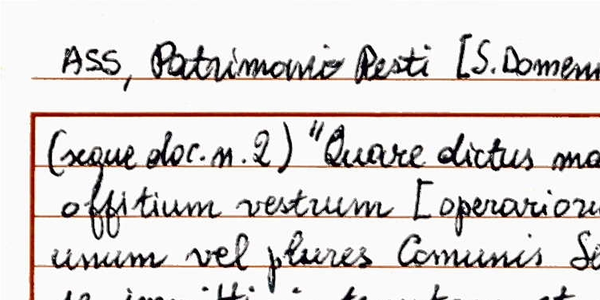 ASS, Patrimonio Resti [S. Domen
(segue doc. n. 2) "Quare dictus ma
offitium vestrum [operarioru
unum vel plures Comunis Se